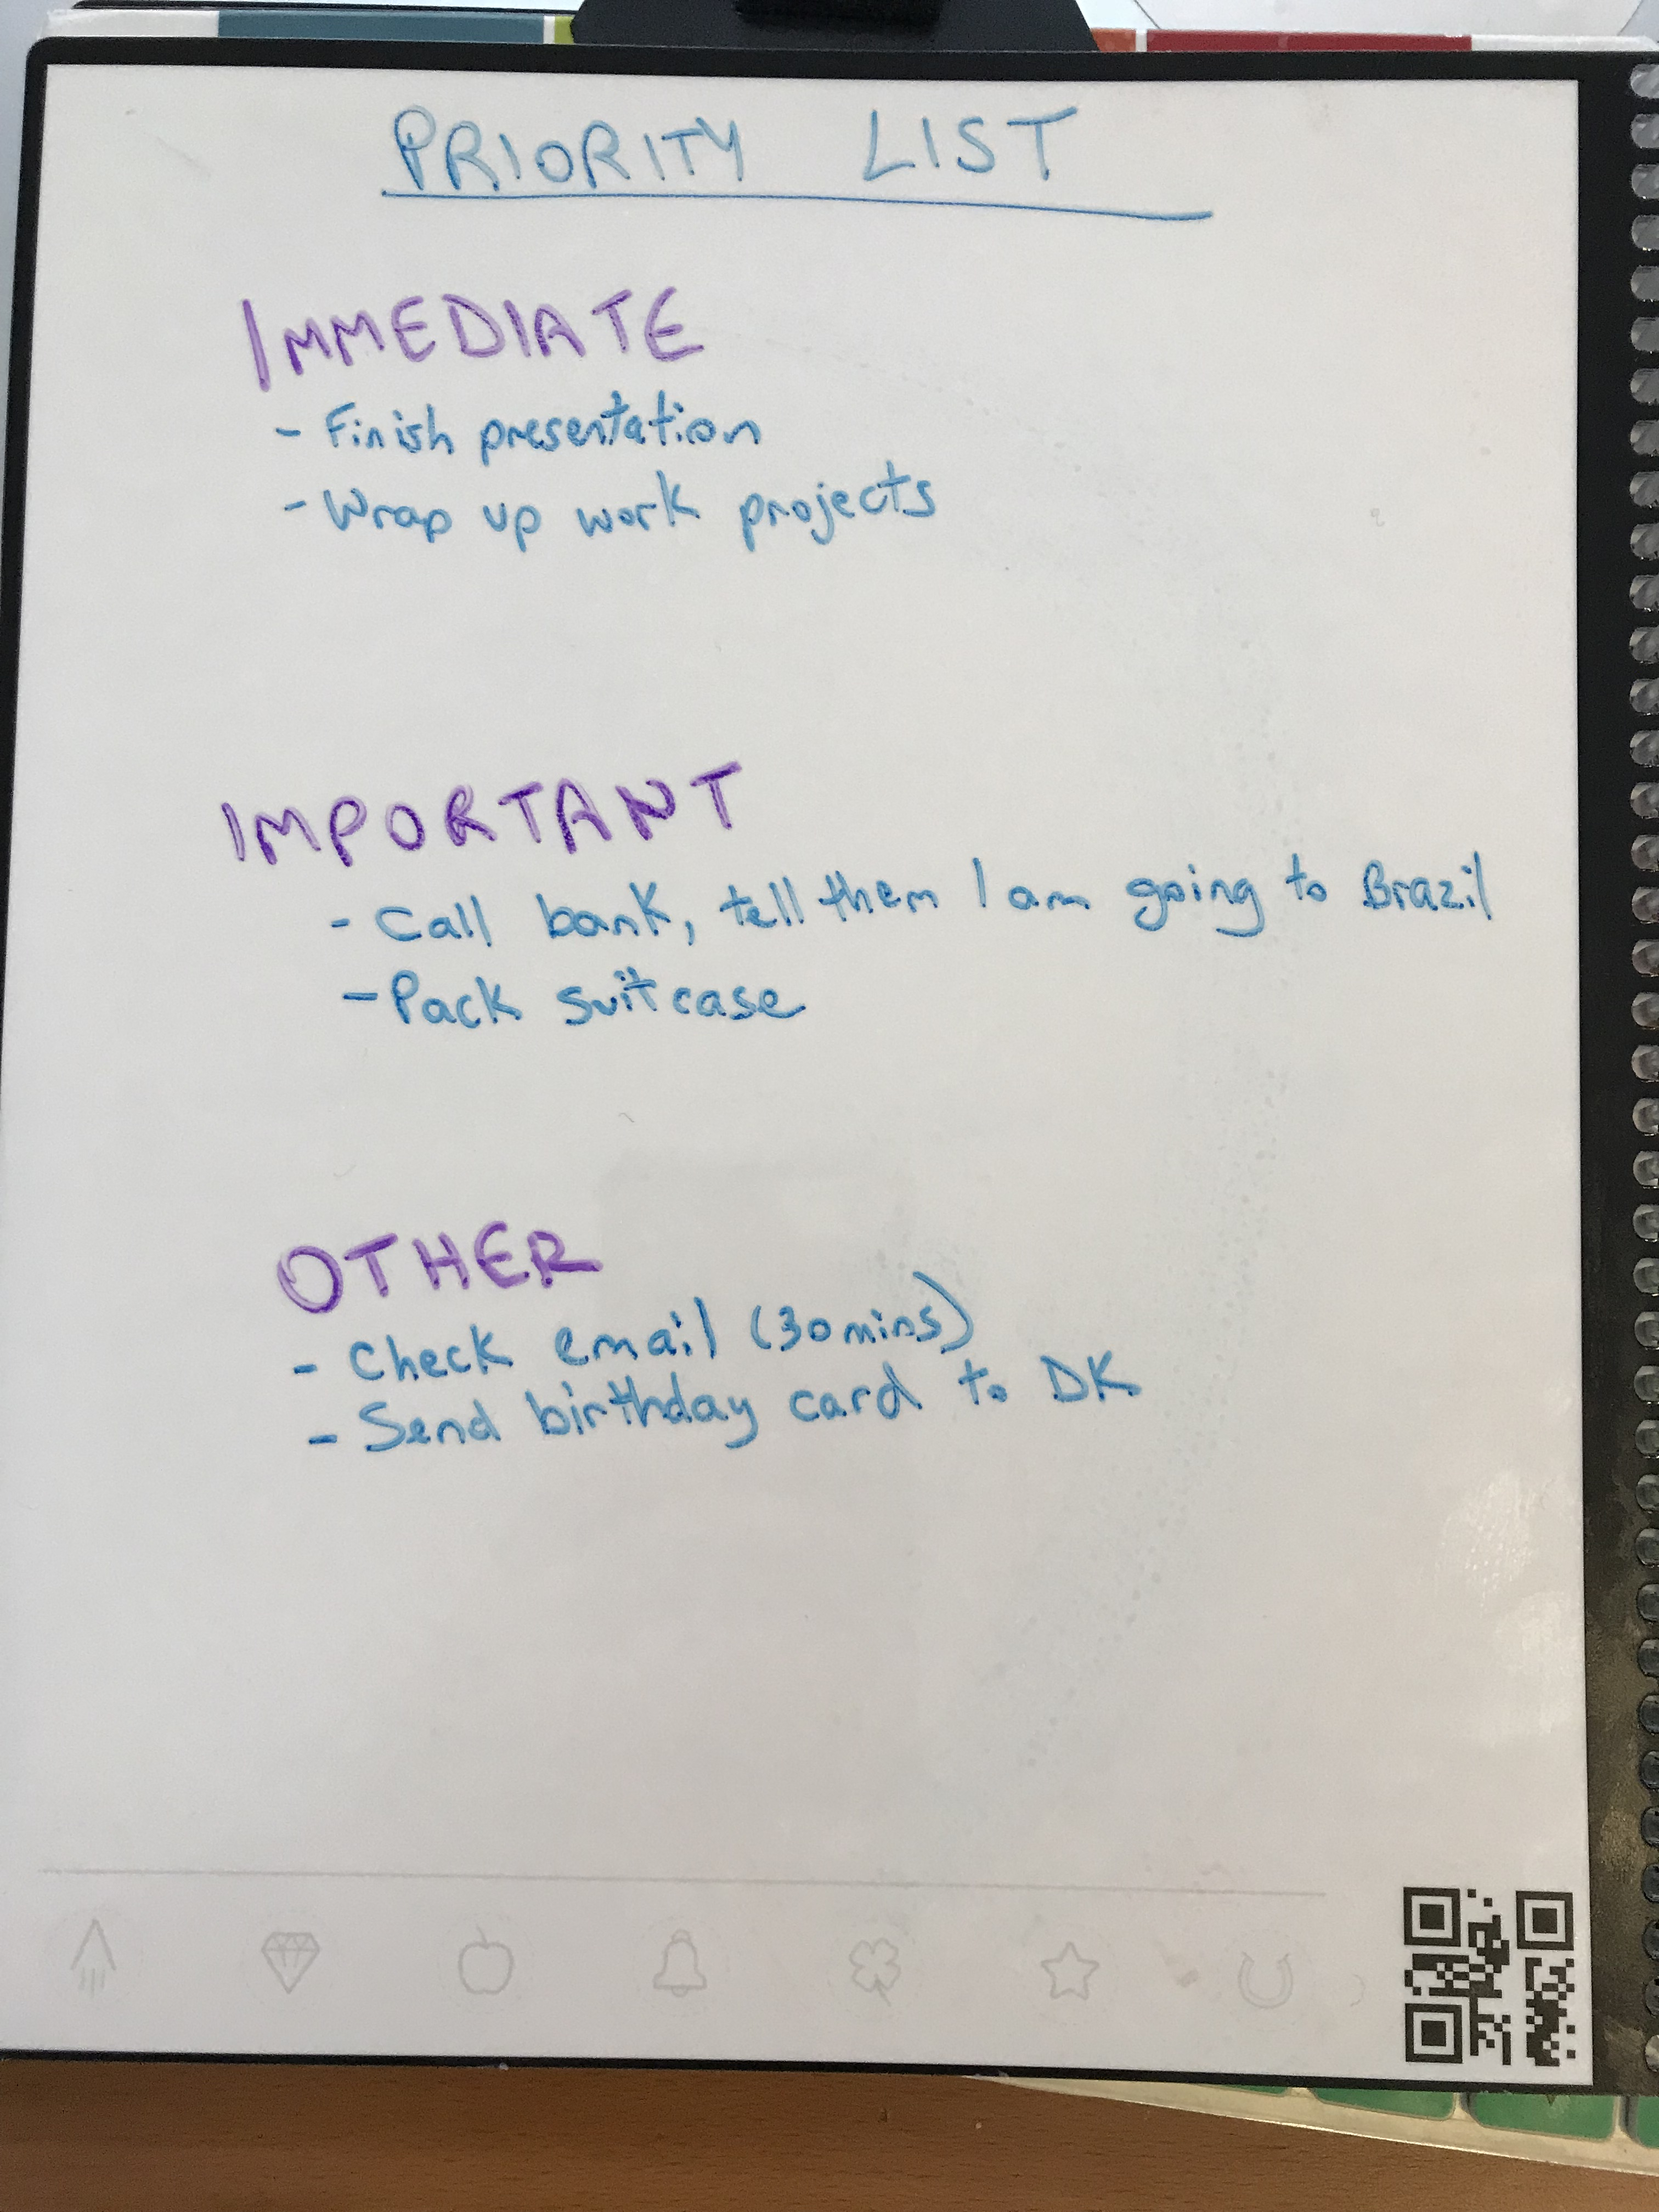 PRIORITY LIST
IMMEDIATE
- Finish presentation
- Wrap up work projects
IMPORTANT
- Call bank, tell them I am going to Brazil
- Pack suitcase
OTHER
- Check email (30 mins)
- Send birthday card to DK